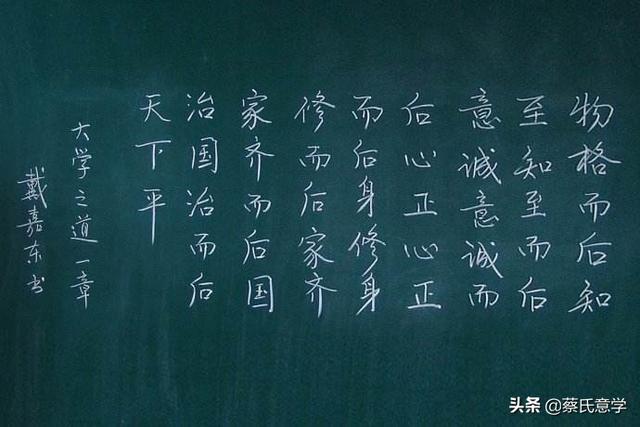 物格而后知
至知至而后
意诚意诚而
后心正心正
而后身修身
修而后家齐
家齐而后国
治国治而后
天下平
大学之道一章
戴嘉东书
头条 @蔡氏意学